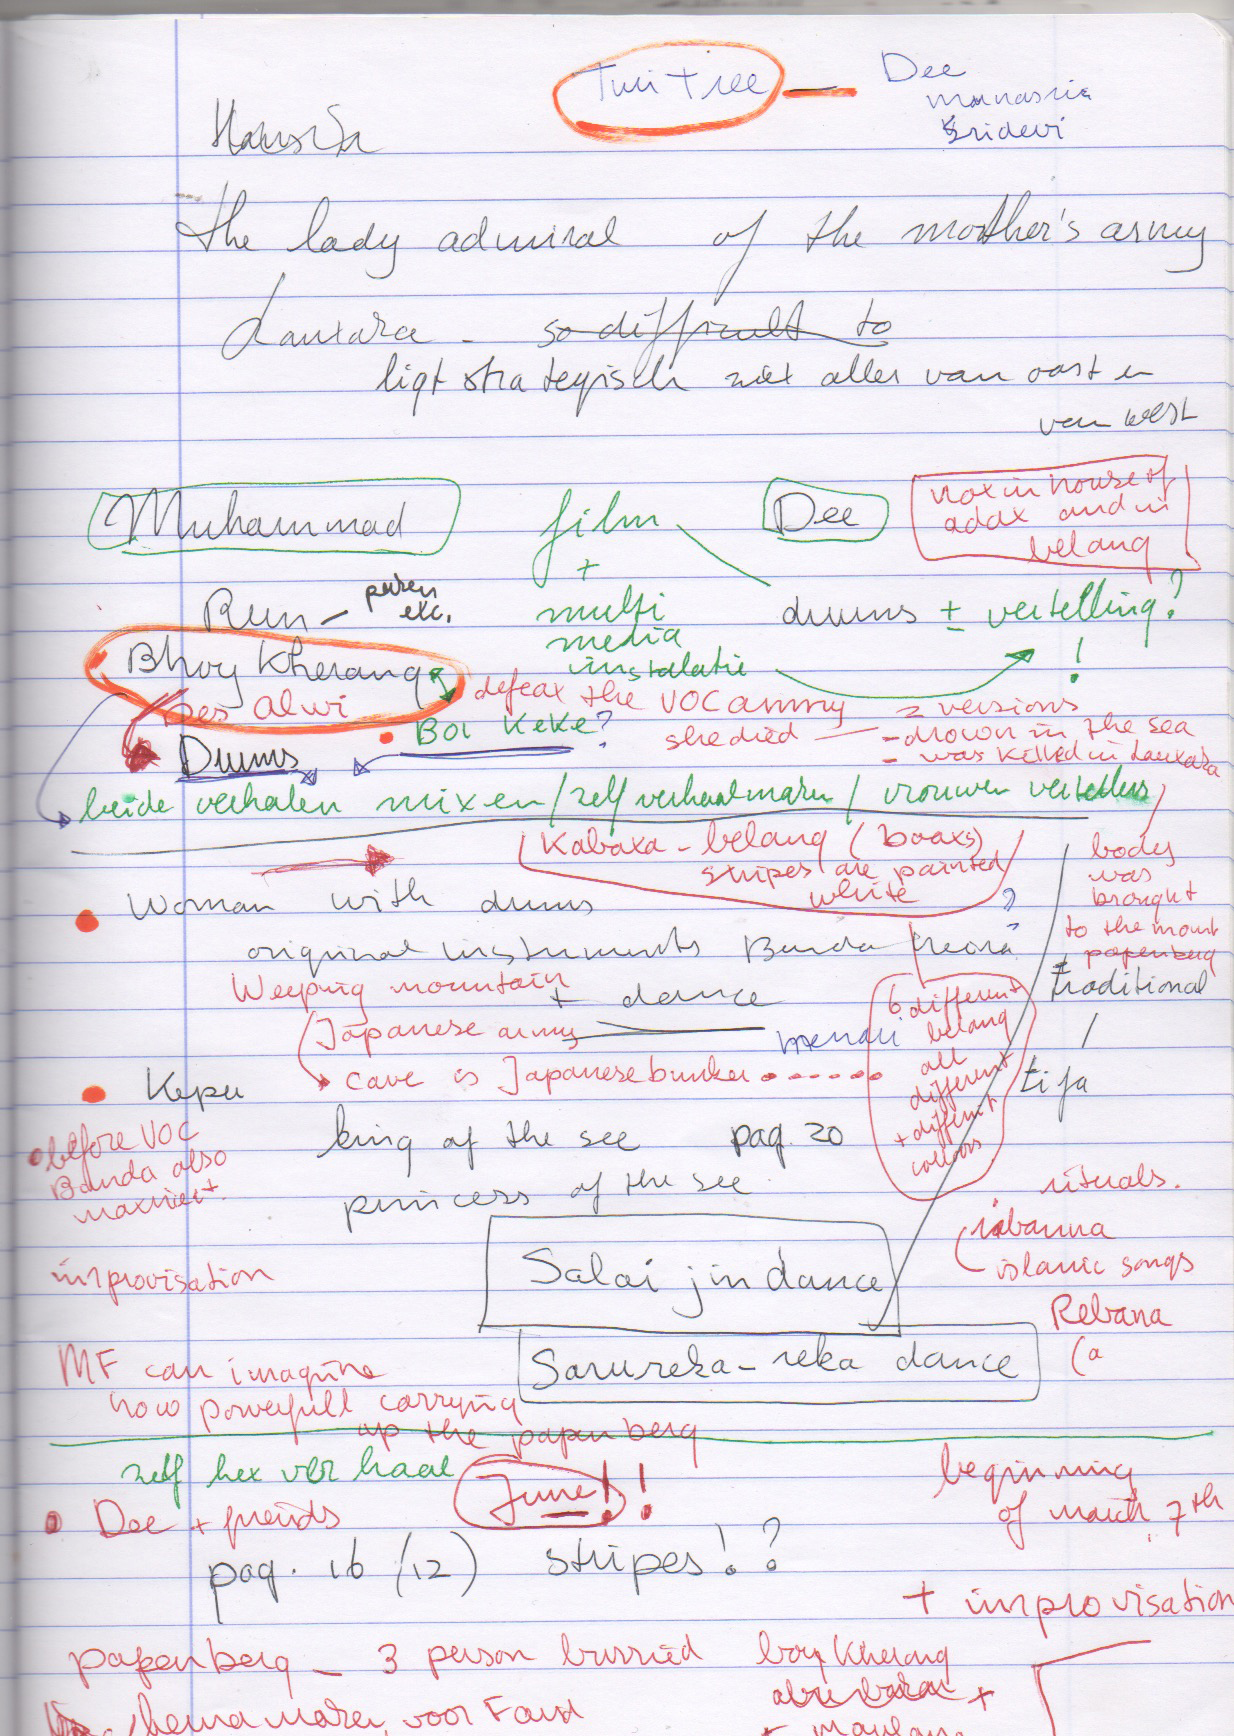 Tuii tree — Dee
manasria
Sridevi
The lady admiral of the mother's army
Lautara - so difficult to
ligt strategisch niet alles van oost en
van west
Muhammad
film
+
multi
media
instalatie
Dee
not in house of
adat and in
belang
Run - puren
etc.
drums ± vertelling?
!
Bhoy Kherang
Des Alwi
Boi Keke?
defeat the VOC army
she died — 2 versions
- drown in the sea
- was killed in Lautara
Drums
beide verhalen mixen / zelf verhaal maken / vrouwen vertellers
Kabata - belang (boats)
stripes are painted
white
body
was
brought
to the mount
papenberg
Woman with drums
original instruments Banda Neora?
+ dance
traditional
/
tifa
Weeping mountain
Japanese army
cave is Japanese bunker
6 different
belang
all
different
+ differnt
collors
Kepu
king of the see pag. 20
princess of the see
before VOC
Banda also
improvisation
rituals.
rabanna
islamic songs
Rebana
(a
Salai jin dance
Sarureka-reka dance
MF can imagine
how powerfull carrying
up the papenberg
zelf het verhaal
June!!
beginning
of march 7th
Dee + friends
pag. 16 (12) stripes!?
+ improvisation
papenberg - 3 person burried
boy Kherang
+
thema maken voor Farid
+ maulana